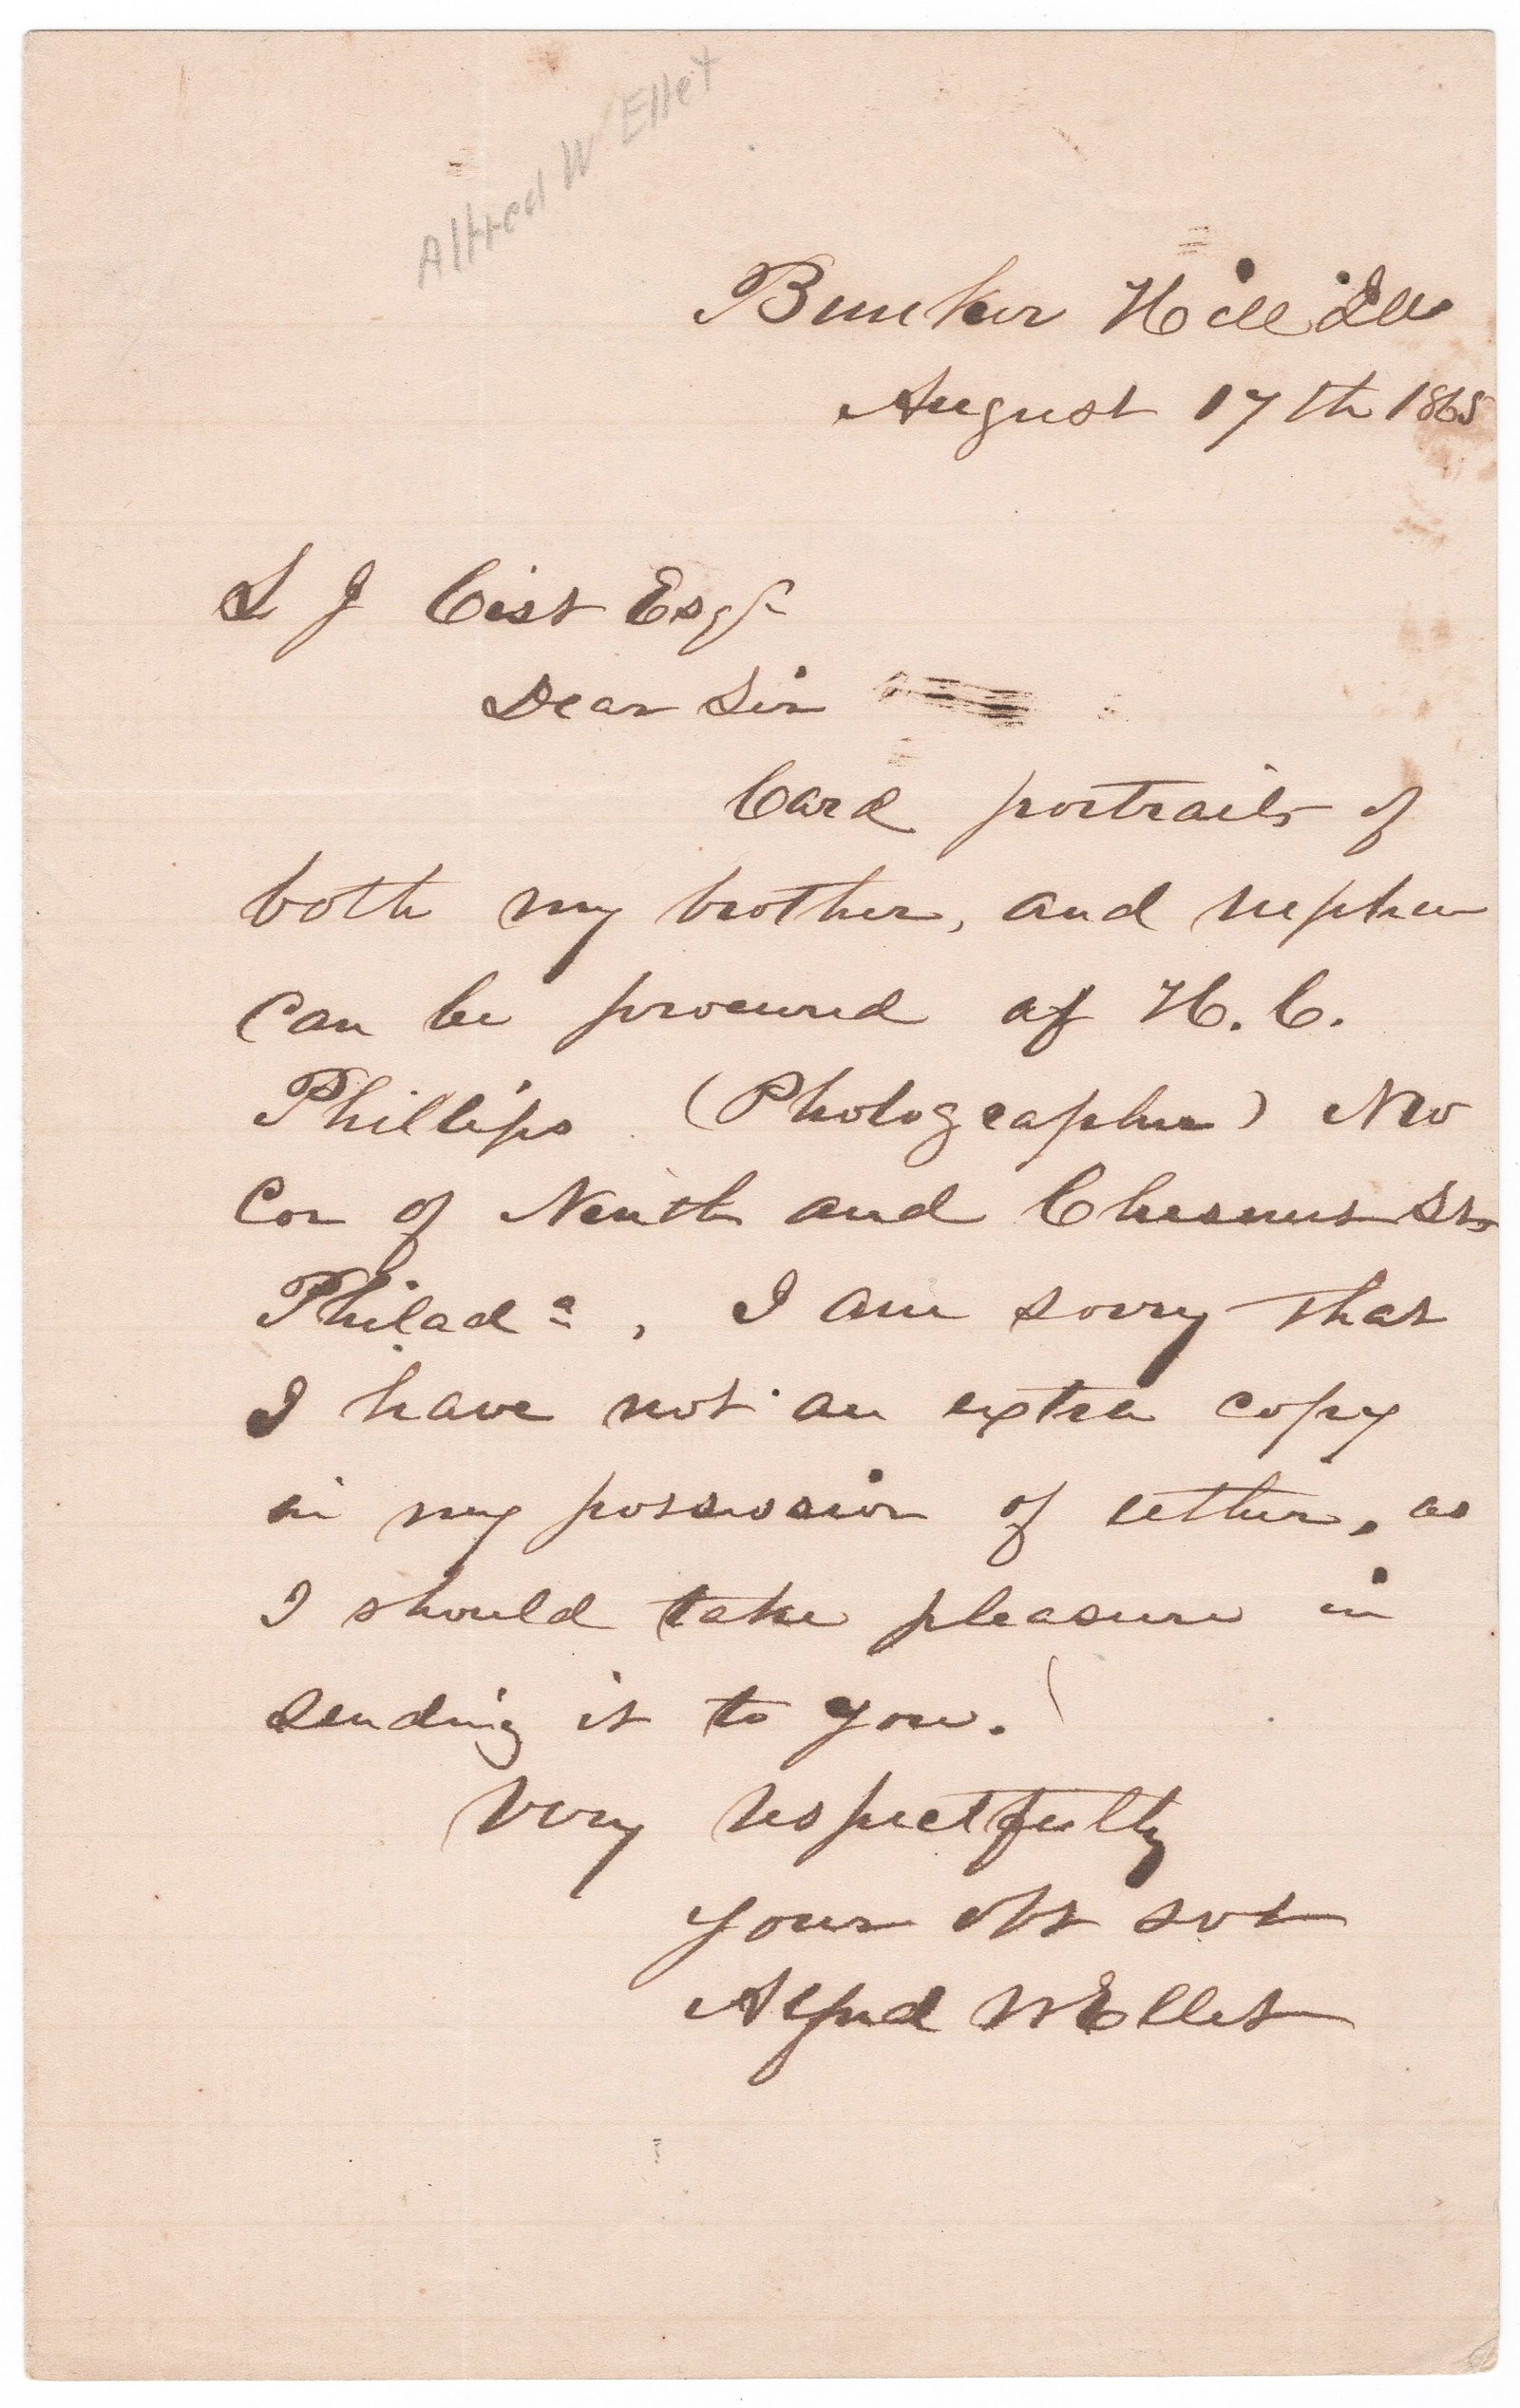 Alfred W Ellet
Bunker Hill Ills
August 17th 1865
L J Cist Esqr
Dear Sir
Card portraits of
both my brother, and nephew
can be procured of H. C.
Phillips (Photographer) NW
Cor of Ninth and Chesnut Sts
Philada, I am sorry that
I have not an extra copy
in my possession of either, as
I should take pleasure in
sending it to you.
Very respectfully
your obt svt
Alfred W Ellet